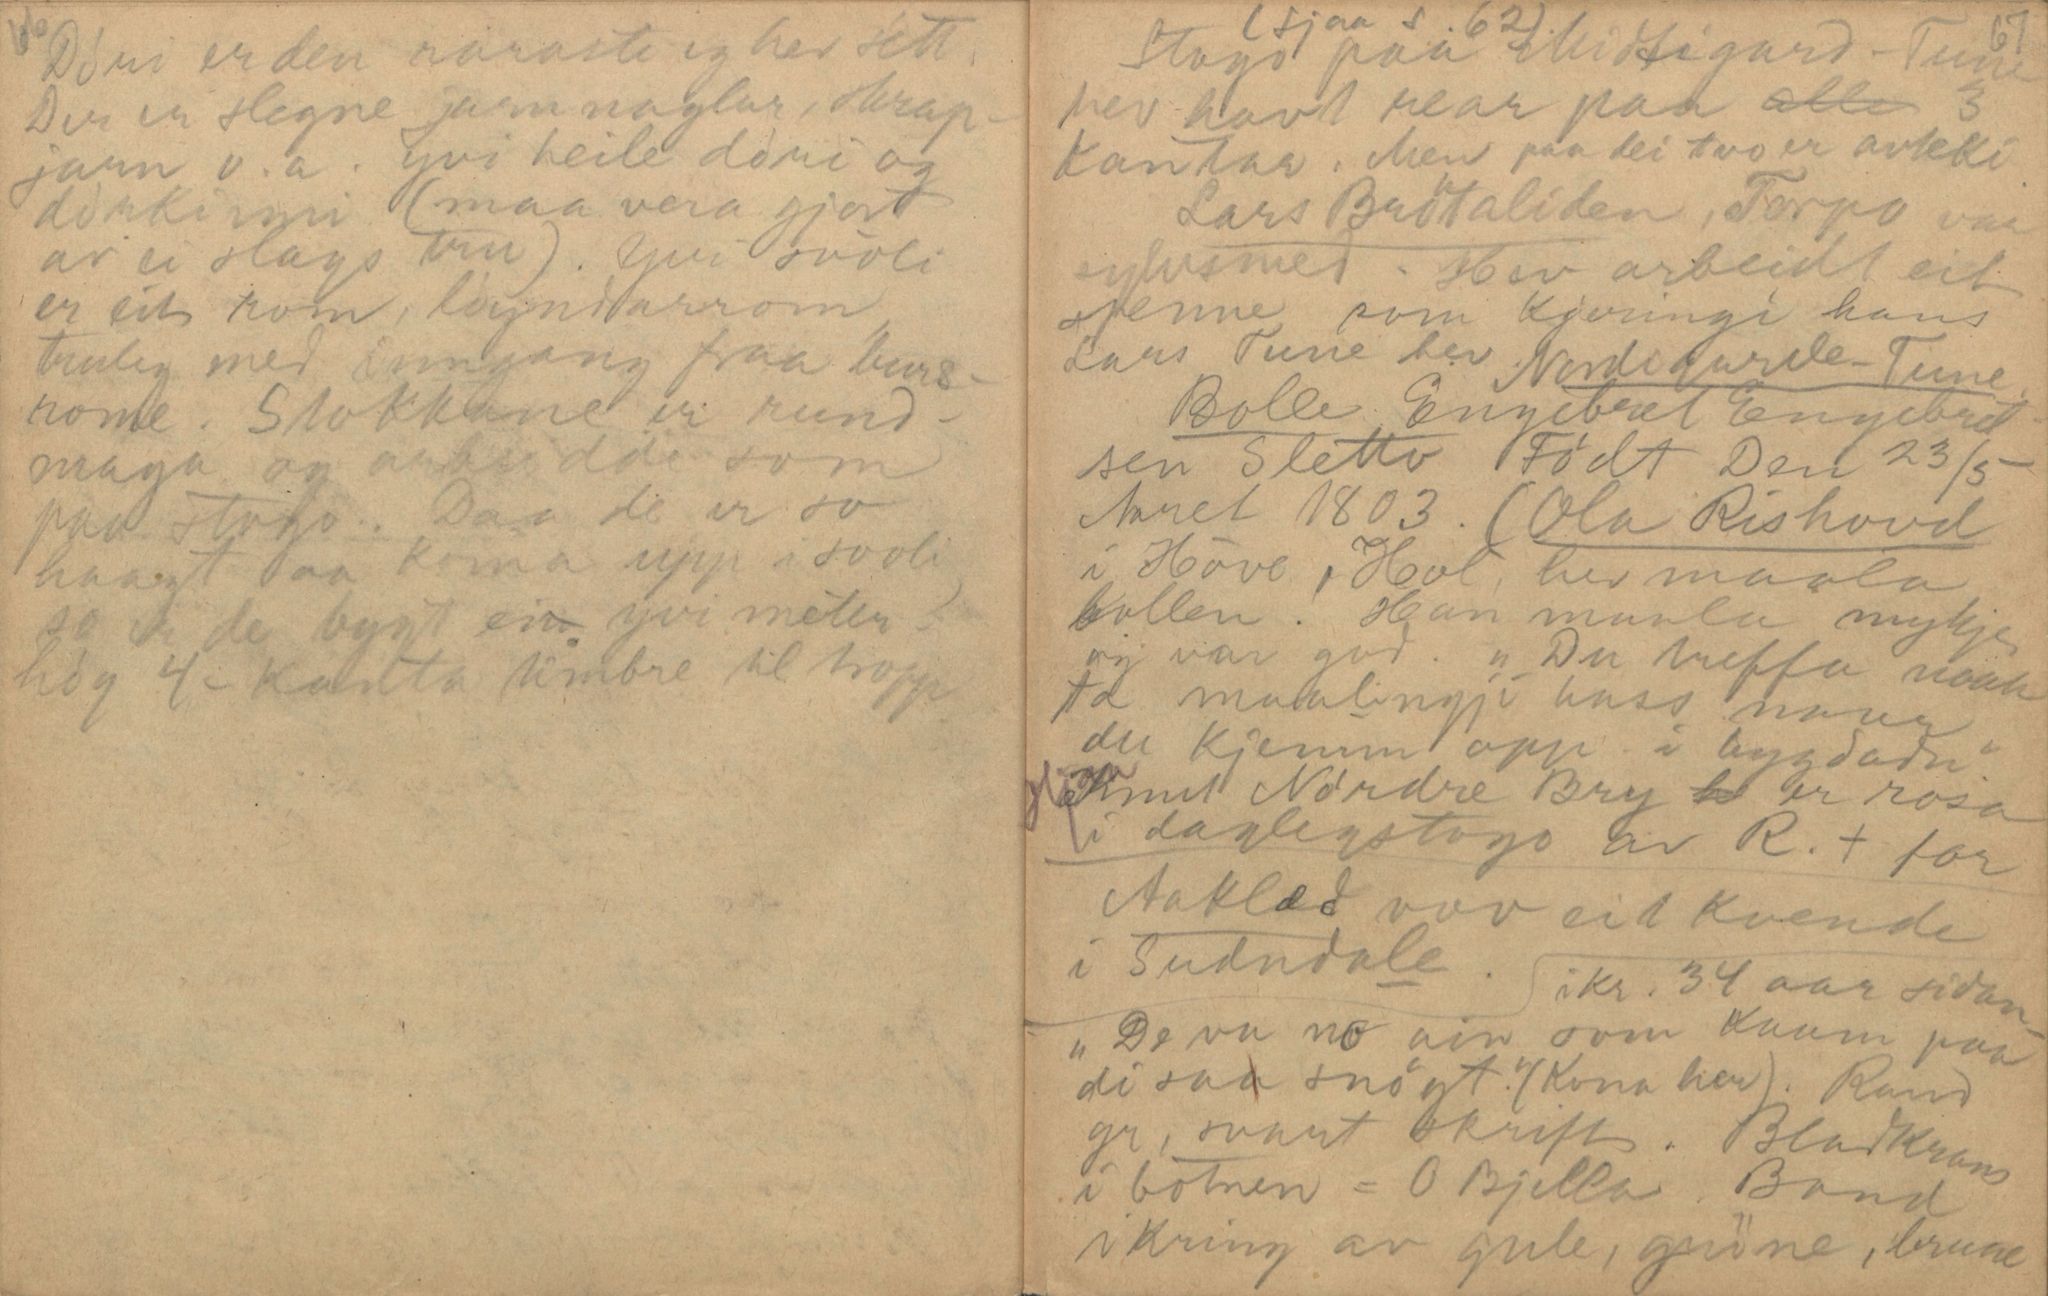 66
Döri er den raraste eg hev sétt.
Der er slegne jarnnaglar, skrap-
jarn o.a. yvi heile döri og
dörkinni (maa vera gjort
av ei slags tru). Yvi svöli
er eit rom, löyndarrom,
truleg med inngang fraa burs-
rome. Stokkane er rund-
maga og arbeidde som
paa stogo. Daa de er so
haagt aa koma upp i svoli
so er de bygt ein yvi meter
hög 4-kanta timbre til tropp
67
(Sjaa s. 62)
Stogo paa Midtigard-Tune
hev havt svear paa alle 3
Kantar. Men paa dei two er avteki
Lars Brötaliden, Torpo var
sylvsmed. Hev arbeidt eit
spenne som Kjeringi hans
Lars Tune hev. Nordigarde-Tune.
Bolle. Engebret Engebret-
sen Sletto Födt Den 23/5
Aaret 1803. (Ola Rishovd
i Höve, Hol, hev maala
bollen. Han maala mykje
og var god. "Du treffa noak
ta maalingji hass naar
du kjemm opp i bygdadn"
Knut Nördre Bry h er rosa
i daglegstogo av R. + far
Aaklæd vov eit Kvende
i Sudndale.
ikr. 34 aar sidan
"De va no ain som Kaam paa
di saa snögt." (Kona her). Rand
gr, svart skrift. Bladkrans
i botnen = O Bjella. Band
ikring av gule, gröne, brune